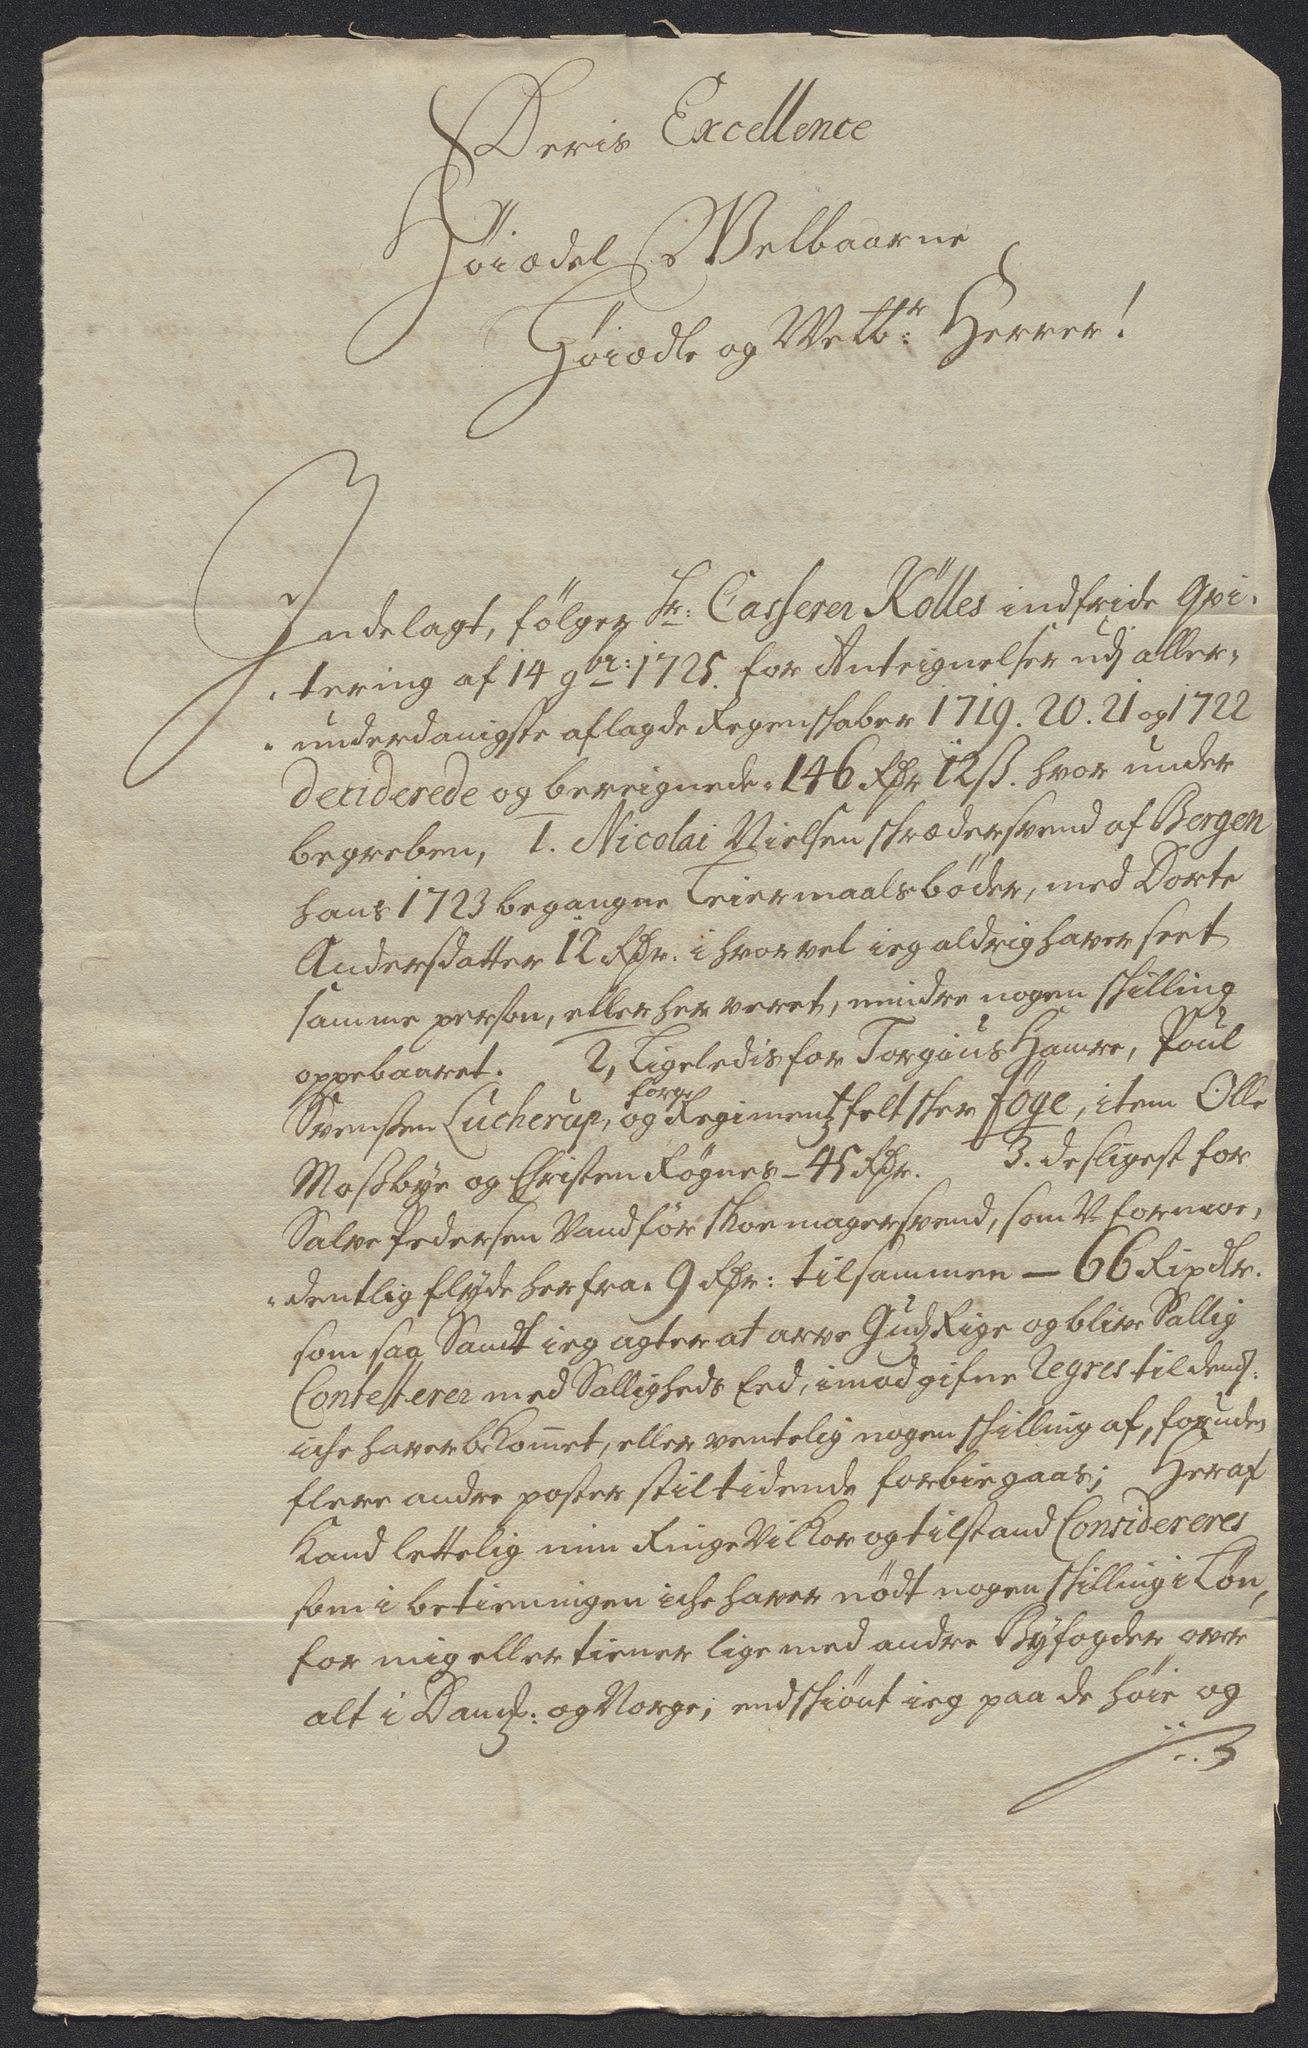 Deris Excellence
Höiædel Welbaarne
Höiædle og Welb:r Herrer!
Indelagt, følger Hr: Casserer Kölles indfride Qvi-
tering af 14 9br: 1725. for Anteignelser udj aller-
underdanigste aflagde Regenskaber 1719. 20. 21 og 1722
deciderede og bereignede 146 Rdr 12 ß. hvor under
begreben, 1. Nicolai Nielsen skrædersvend af Bergen
hans 1723 begangne Leiermaalsbøder, med Dorte
Andersdatter 12 Rdr. i hvorvel ieg aldrig haver seet
samme person, eller her veret, mindre nogen skilling
oppebaaret. 2, Ligeledis for Torgius Hamre, Poul
Svensen Lucherup, og Regimentz feltsker föge, item Olle
Mossbye og Christen Røgnes - 45 Rdr. 3. desligest for
Salve Pedersen Vandför skoemagersvend, som
dentlig flyde her fra. 9 Rdr: tilsammen - 66 Rixdlr.
som saa Sandt ieg agter at arve Gudz Rige og blive Sallig
Contesterer med Salligheds Eed, imod gifne Regres til dend:
iche haver bekommet, eller ventelig nogen skilling af, foruden
flere andre poster stiltidende forbiegaas; Heraf
Kand lettelig min Ringe Vilkor og tilstand Considereres
som i betieningen iche haver nødt nogen skilling i Løn,
for mig eller tiener lige med andre Byfogder over
alt i Danm: og Norge; endskiönt ieg paa de høie og